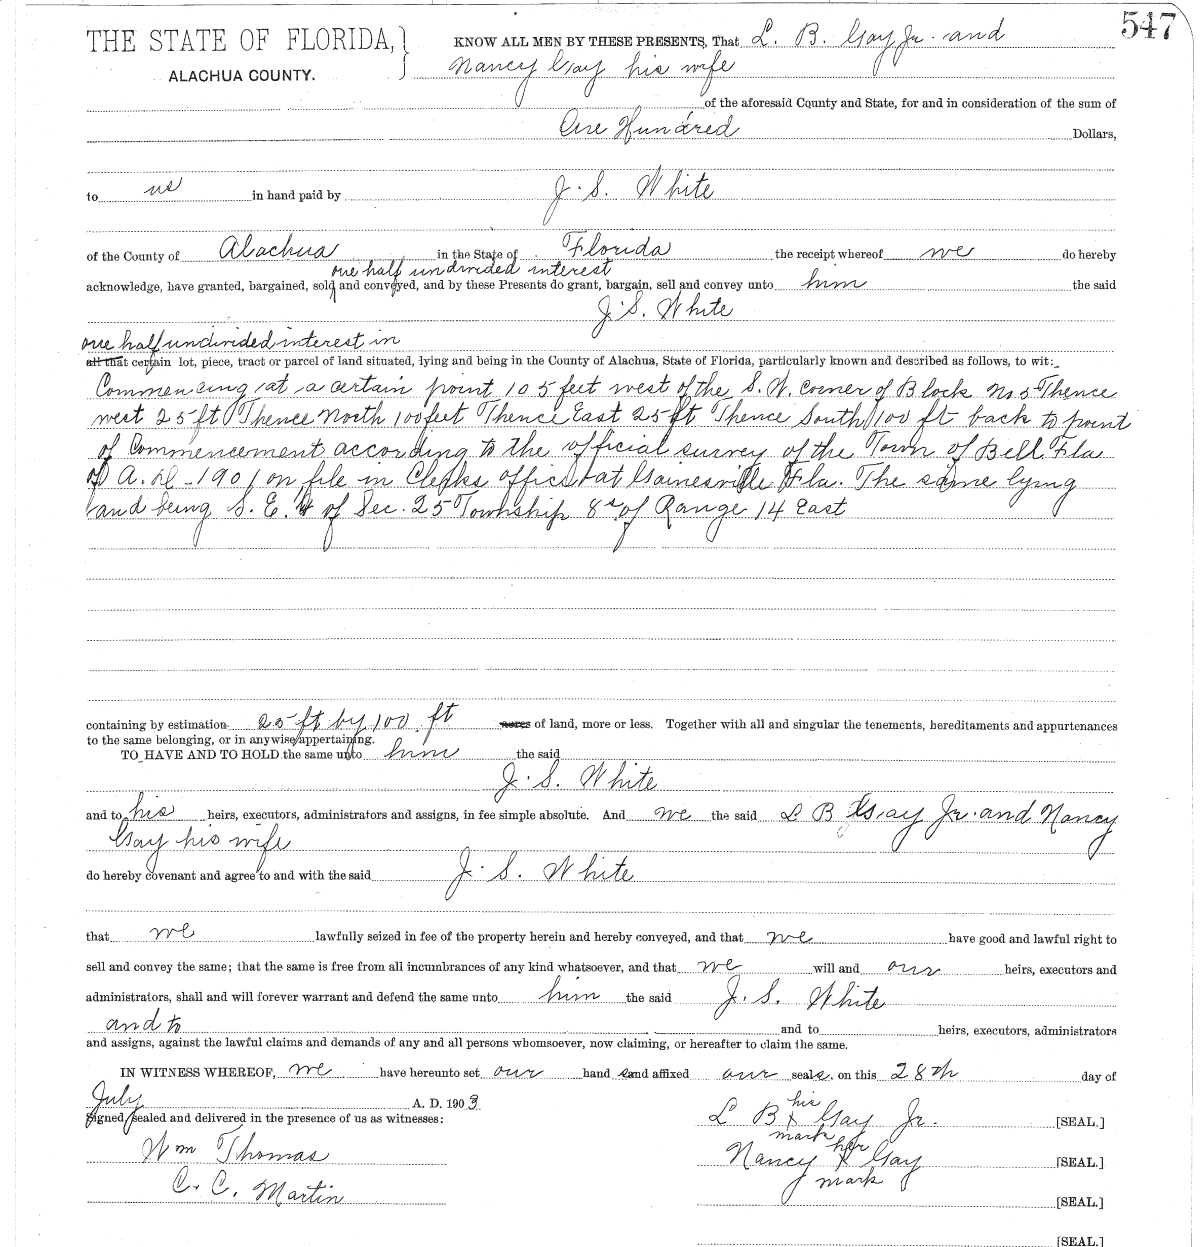 547
THE STATE OF FLORIDA, } KNOW ALL MEN BY THESE PRESENTS, That L. B. Gay Jr. and
ALACHUA COUNTY. Nancy Gay his wife
of the aforesaid County and State, for and in consideration of the sum of
One Hundred Dollars,
to us in hand paid by J. S. White
of the County of Alachua in the State of Florida the receipt whereof we do hereby
one half undivided interest
acknowledge, have granted, bargained, sold and conveyed, and by these Presents do grant, bargain, sell and convey unto him the said
J. S. White
one half undivided interest in
all that certain lot, piece, tract or parcel of land situated, lying and being in the County of Alachua, State of Florida, particularly known and described as follows, to wit:
Commencing at a certain point 105 feet west of the S.W. corner of Block No 5 Thence
west 25 ft Thence North 100 feet Thence East 25 ft Thence South 100 ft back to point
of Commencement according to the official survey of the Town of Bell Fla
of A. D. 1901 on file in Clerks office at Gainesville Fla. The same lying
and being S. E. 4 of Sec. 25 Township 8 s of Range 14 East
containing by estimation 25 ft by 100 ft acres of land, more or less. Together with all and singular the tenements, hereditaments and appurtenances
to the same belonging, or in anywise appertaining.
TO HAVE AND TO HOLD the same unto him the said
J. S. White
and to his heirs, executors, administrators and assigns, in fee simple absolute. And we the said L B Gay Jr. and Nancy
Gay his wife
do hereby covenant and agree to and with the said J. S. White
that we lawfully seized in fee of the property herein and hereby conveyed, and that we have good and lawful right to
sell and convey the same; that the same is free from all incumbrances of any kind whatsoever, and that we will and our heirs, executors and
administrators, shall and will forever warrant and defend the same unto him the said J. S. White
and to and to heirs, executors, administrators
and assigns, against the lawful claims and demands of any and all persons whomsoever, now claiming, or hereafter to claim the same.
IN WITNESS WHEREOF, we have hereunto set our hand s and affixed our seals. on this 28th day of
July A. D. 1903
Signed, sealed and delivered in the presence of us as witnesses:
his
L B X Gay Jr. [SEAL.]
mark
Wm Thomas
her
Nancy X Gay [SEAL.]
mark
C. C. Martin
[SEAL.]
[SEAL.]